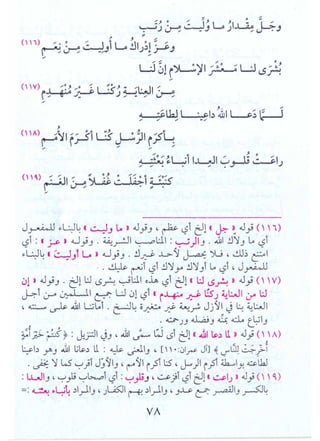 وَجَلَّ مِقْدَارُ مَا وُلِّيتَ مِنْ رُتَبٍ
وَعَزَّ إِدْرَاكُ مَا أُولِيتَ مِنْ نِعَمِ (١١٦)
بُشْرَى لَنَا مَعْشَرَ الإِسْلَامِ إِنَّ لَنَا
مِنَ العِنَايَةِ رُكْنًا غَيْرَ مُنْهَدِمِ (١١٧)
لَمَّا دَعَا اللهُ دَاعِينَا لِطَاعَتِهِ
بِأَكْرَمِ الرُّسْلِ كُنَّا أَكْرَمَ الأُمَمِ (١١٨)
رَاعَتْ قُلُوبَ العِدَا أَنْبَاءُ بَعْثَتِهِ
كَنَبْأَةٍ أَجْفَلَتْ غُفْلًا مِنَ الغَنَمِ (١١٩)
(١١٦) قوله « جل » إلخ أي عظم، وقوله « ما وليت » بالبناء للمفعول
أي ما ولاك الله . والرتب : المناصب الشريفة . وقوله « عز » : أي
امتنع ذلك ، فلا يحصل لأحد غيرك . وقوله « ما أوليت » بالبناء
للمفعول ، أي ما أولاك مولاك أي أنعم عليك .
(١١٧) قوله « بشرى لنا » إلخ أي هذه المناقب بشرى لنا إلخ . وقوله « إن
لنا من العناية ركنًا غير منهدم » أي إن لنا جميع المسلمين من أجل
العناية بنا في الأزل شريعة غير متغيرة بالنسخ . أماتنا الله على سنته ،
واتباع ملته بمنّه وفضله ورحمته .
(١١٨) قوله « لما دعا الله » إلخ أي لمّا سمَّى الله ، وفي التنزيل : ﴿ كُنْتُمْ خَيْرَ أُمَّةٍ
أُخْرِجَتْ لِلنَّاسِ ﴾ [آل عمران: ١١٠] ، والمعنى عليه : لما دعانا الله وهو داعينا
لطاعته بواسطة أكرم الرسل ، كنا أكرم الأمم ، والأول أقرب كما لا يخفى .
(١١٩) قوله « راعت » إلخ أي أفزعت ، وقلوب : أي أصحاب قلوب ، والعدا :
بالكسر والقصر جمع عدو ، والمراد بهم الكفار ، والمراد بأنباء بعثته :=
٧٨